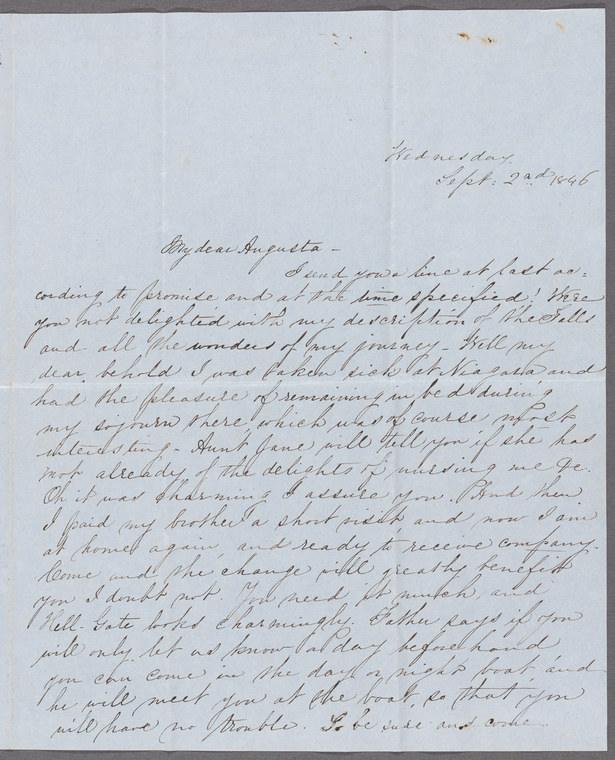 Wednesday.
Sept: 2nd 1846
My dear Augusta -
I send you a line at last ac=
cording to promise and at the time specified! Were
you not delighted with my description of the Falls
and all the wonders of my journey - Well my
dear, behold I was taken sick at Niagara and
had the pleasure of remaining in bed during
my sojourn there, which was of course most
interesting - Aunt Jane will tell you if she has
not already of the delights of nursing me &c.
Oh it was charming I assure you. And then
I paid my brother a short visit and now I am
at home again, and ready to receive company.
Come and the change will greatly benefit
you I doubt not. You need it much, and
Hell-Gate looks charmingly. Father says if you
will only let us know a day before hand
you can come in the day or night boat and
he will meet you at the boat, so that you
will have no trouble. So be sure and come